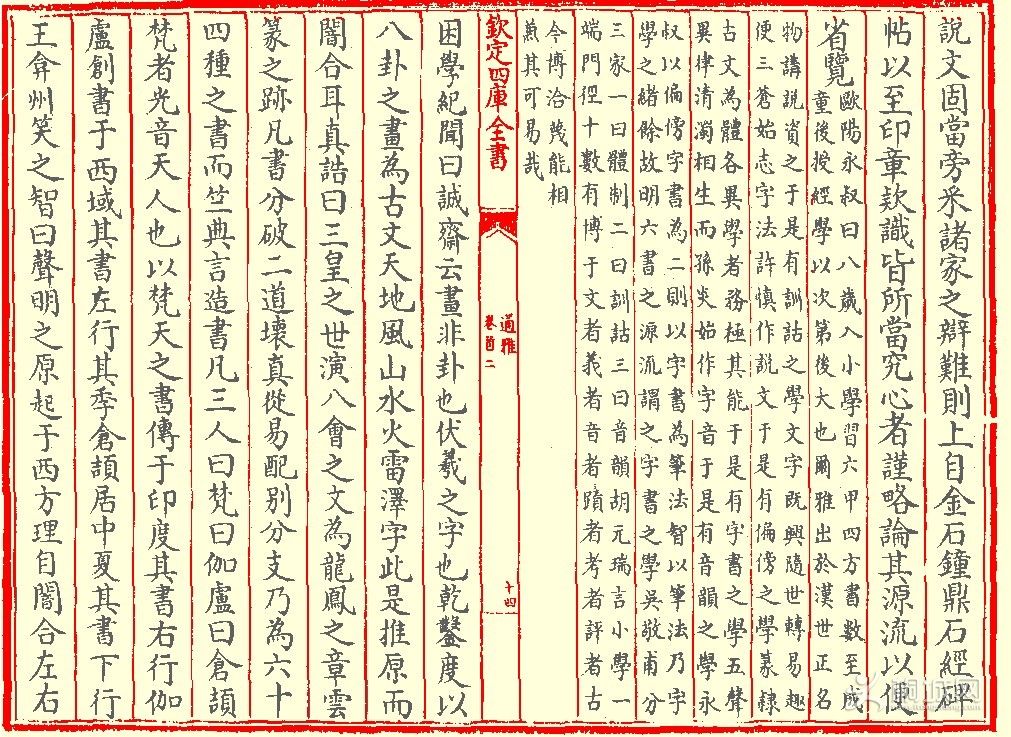 說文固當旁采諸家之辯難則上自金石鐘鼎石經碑
帖以至印章款識皆所當究心者謹略論其源流以便
省覽
歐陽永叔曰八歲入小學習六甲四方書數至成
童後授經學以次第後大也爾雅出於漢世正名
物講說資之于是有訓詁之學文字既興隨世轉易趣
便三蒼始志字法許慎作說文于是有偏傍之學篆隸
古文為體各異學者務極其能于是有字書之學五聲
異律清濁相生而孫炎始作字音于是有音韻之學永
叔以偏傍字書為二則以字書為筆法智以筆法乃字
學之緒餘故明六書之源流謂之字書之學吳敬甫分
三家一曰體制二曰訓詁三曰音韻胡元瑞言小學一
端門徑十數有博于文者義者音者蹟者考者評者古
今博洽幾能相
兼其可易哉
欽定四庫全書
通雅
卷首二
十四
困學紀聞曰誠齋云畫非卦也伏羲之字也乾鑿度以
八卦之畫為古文天地風山水火雷澤字此是推原而
闇合耳真誥曰三皇之世演八會之文為龍鳳之章雲
篆之跡凡書分破二道壞真從易配別分支乃為六十
四種之書而竺典言造書凡三人曰梵曰伽盧曰倉頡
梵者光音天人也以梵天之書傳于印度其書右行伽
盧創書于西域其書左行其季倉頡居中夏其書下行
王弇州笑之智曰聲明之原起于西方理自闇合左右